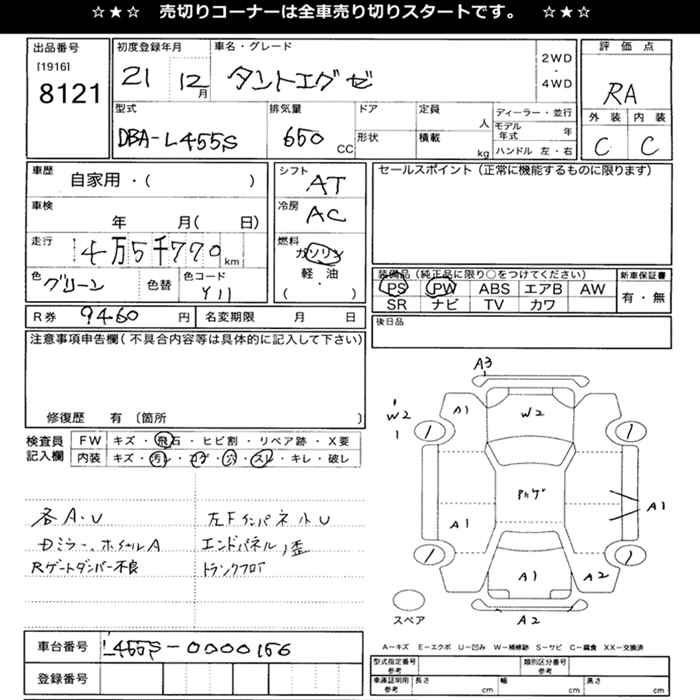 ☆★☆ 売切りコーナーは全車売り切りスタートです。 ☆★☆
出品番号
[1916]
8121
初度登録年月
21 12月
車名・グレード
タントエグゼ
2WD
・
4WD
評価点
RA
外装 内装
C C
型式
DBA-L455S
排気量
650 CC
ドア
形状
定員
人
積載
kg
ディーラー・並行
モデル年式 年
ハンドル 左・右
車歴
自家用・( )
車検
年 月( 日)
走行
4万5千770 km
色
グリーン
色替
色コード
Y11
シフト
AT
冷房
AC
燃料
ガソリン
軽・油
( )
セールスポイント(正常に機能するものに限ります)
装備品(純正品に限り○をつけてください)
PS PW ABS エアB AW
SR ナビ TV カワ
新車保証書
有・無
R券 9460 円
名変期限 月 日
後日品
注意事項申告欄(不具合内容等は具体的に記入して下さい)
修復歴 有(箇所 )
検査員記入欄
FW キズ・飛石・ヒビ割・リペア跡・X要
内装 キズ・汚れ・コゲ・穴・スレ・キレ・破レ
各A・U
Dミラー、ホイールA
Rゲートダンパー不良
左Fインパネ小U
エンドパネル、歪
トランクフロア
A3
W2
A1
W2
A1
A1
A1
A2
A2
スペア
A-キズ E-エクボ U-凹み W-補修跡 S-サビ C-腐食 XX-交換済
車台番号
L455S-0000156
登録番号
型式指定番号
参考
類別区分番号
参考
車庫証明用
参考
長さ cm
幅 cm
高さ cm